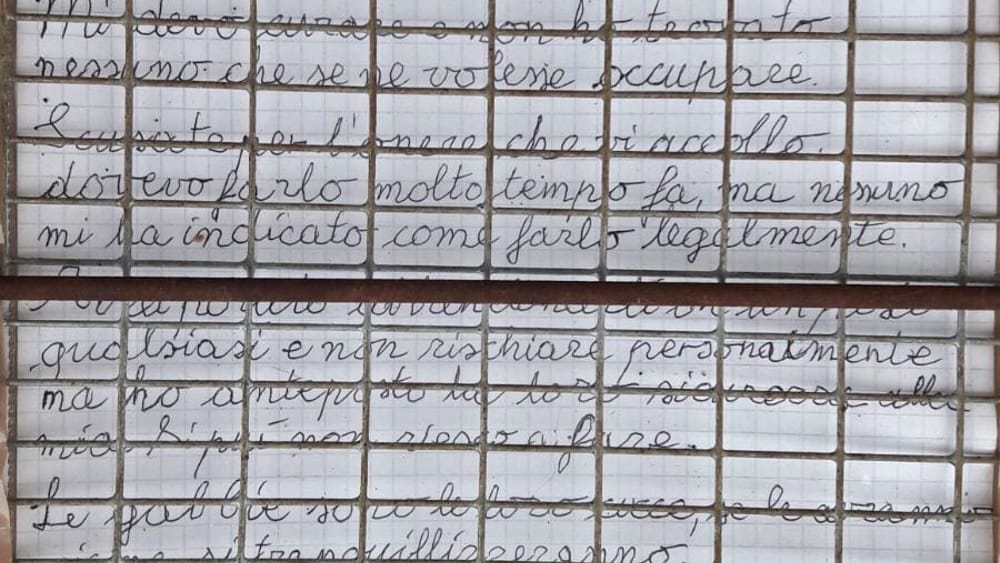 Mi devo curare e non ho trovato
nessuno che se ne volesse occupare.
Scusate per l'onere che vi accollo.
dovevo farlo molto tempo fa, ma nessuno
mi ha indicato come farlo legalmente.
in un posto
qualsiasi e non rischiare personalmente
ma ho anteposto la loro sicurezza alla
mia. Di più non riesco a fare.
Le gabbie sono le loro cucce, se le avranno
si tranquillizzeranno.